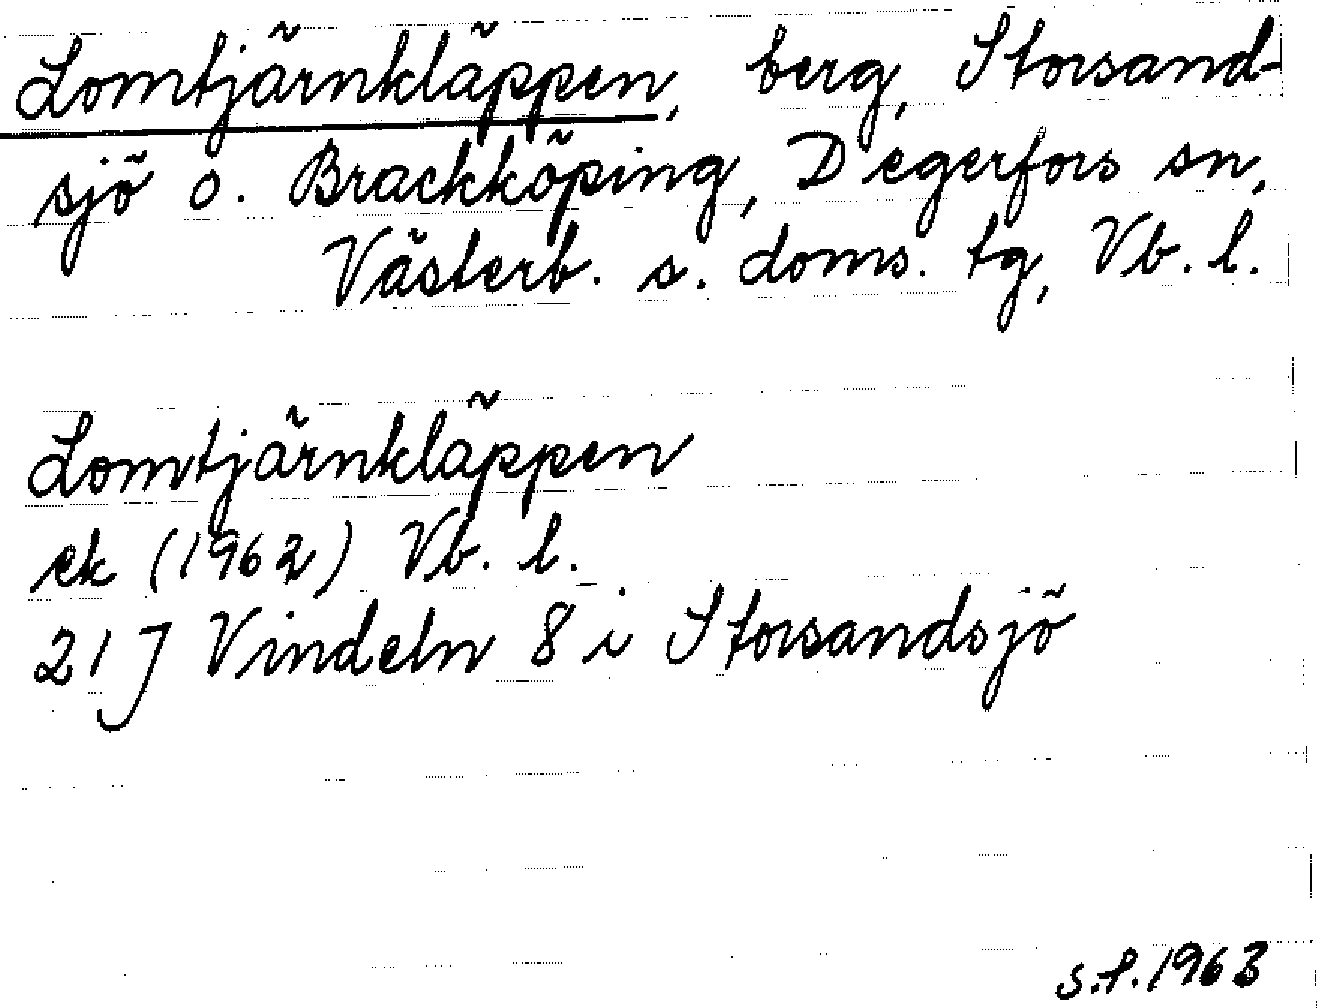 Lomtjärnkläppen, berg, Storsand-
sjö o. Brackköping, Degerfors sn,
Västerb. s. doms. tg, Vb. l.
Lomtjärnkläppen
ek (1962) Vb. l.
21J Vindeln 8 i Storsandsjö
s.f. 1963